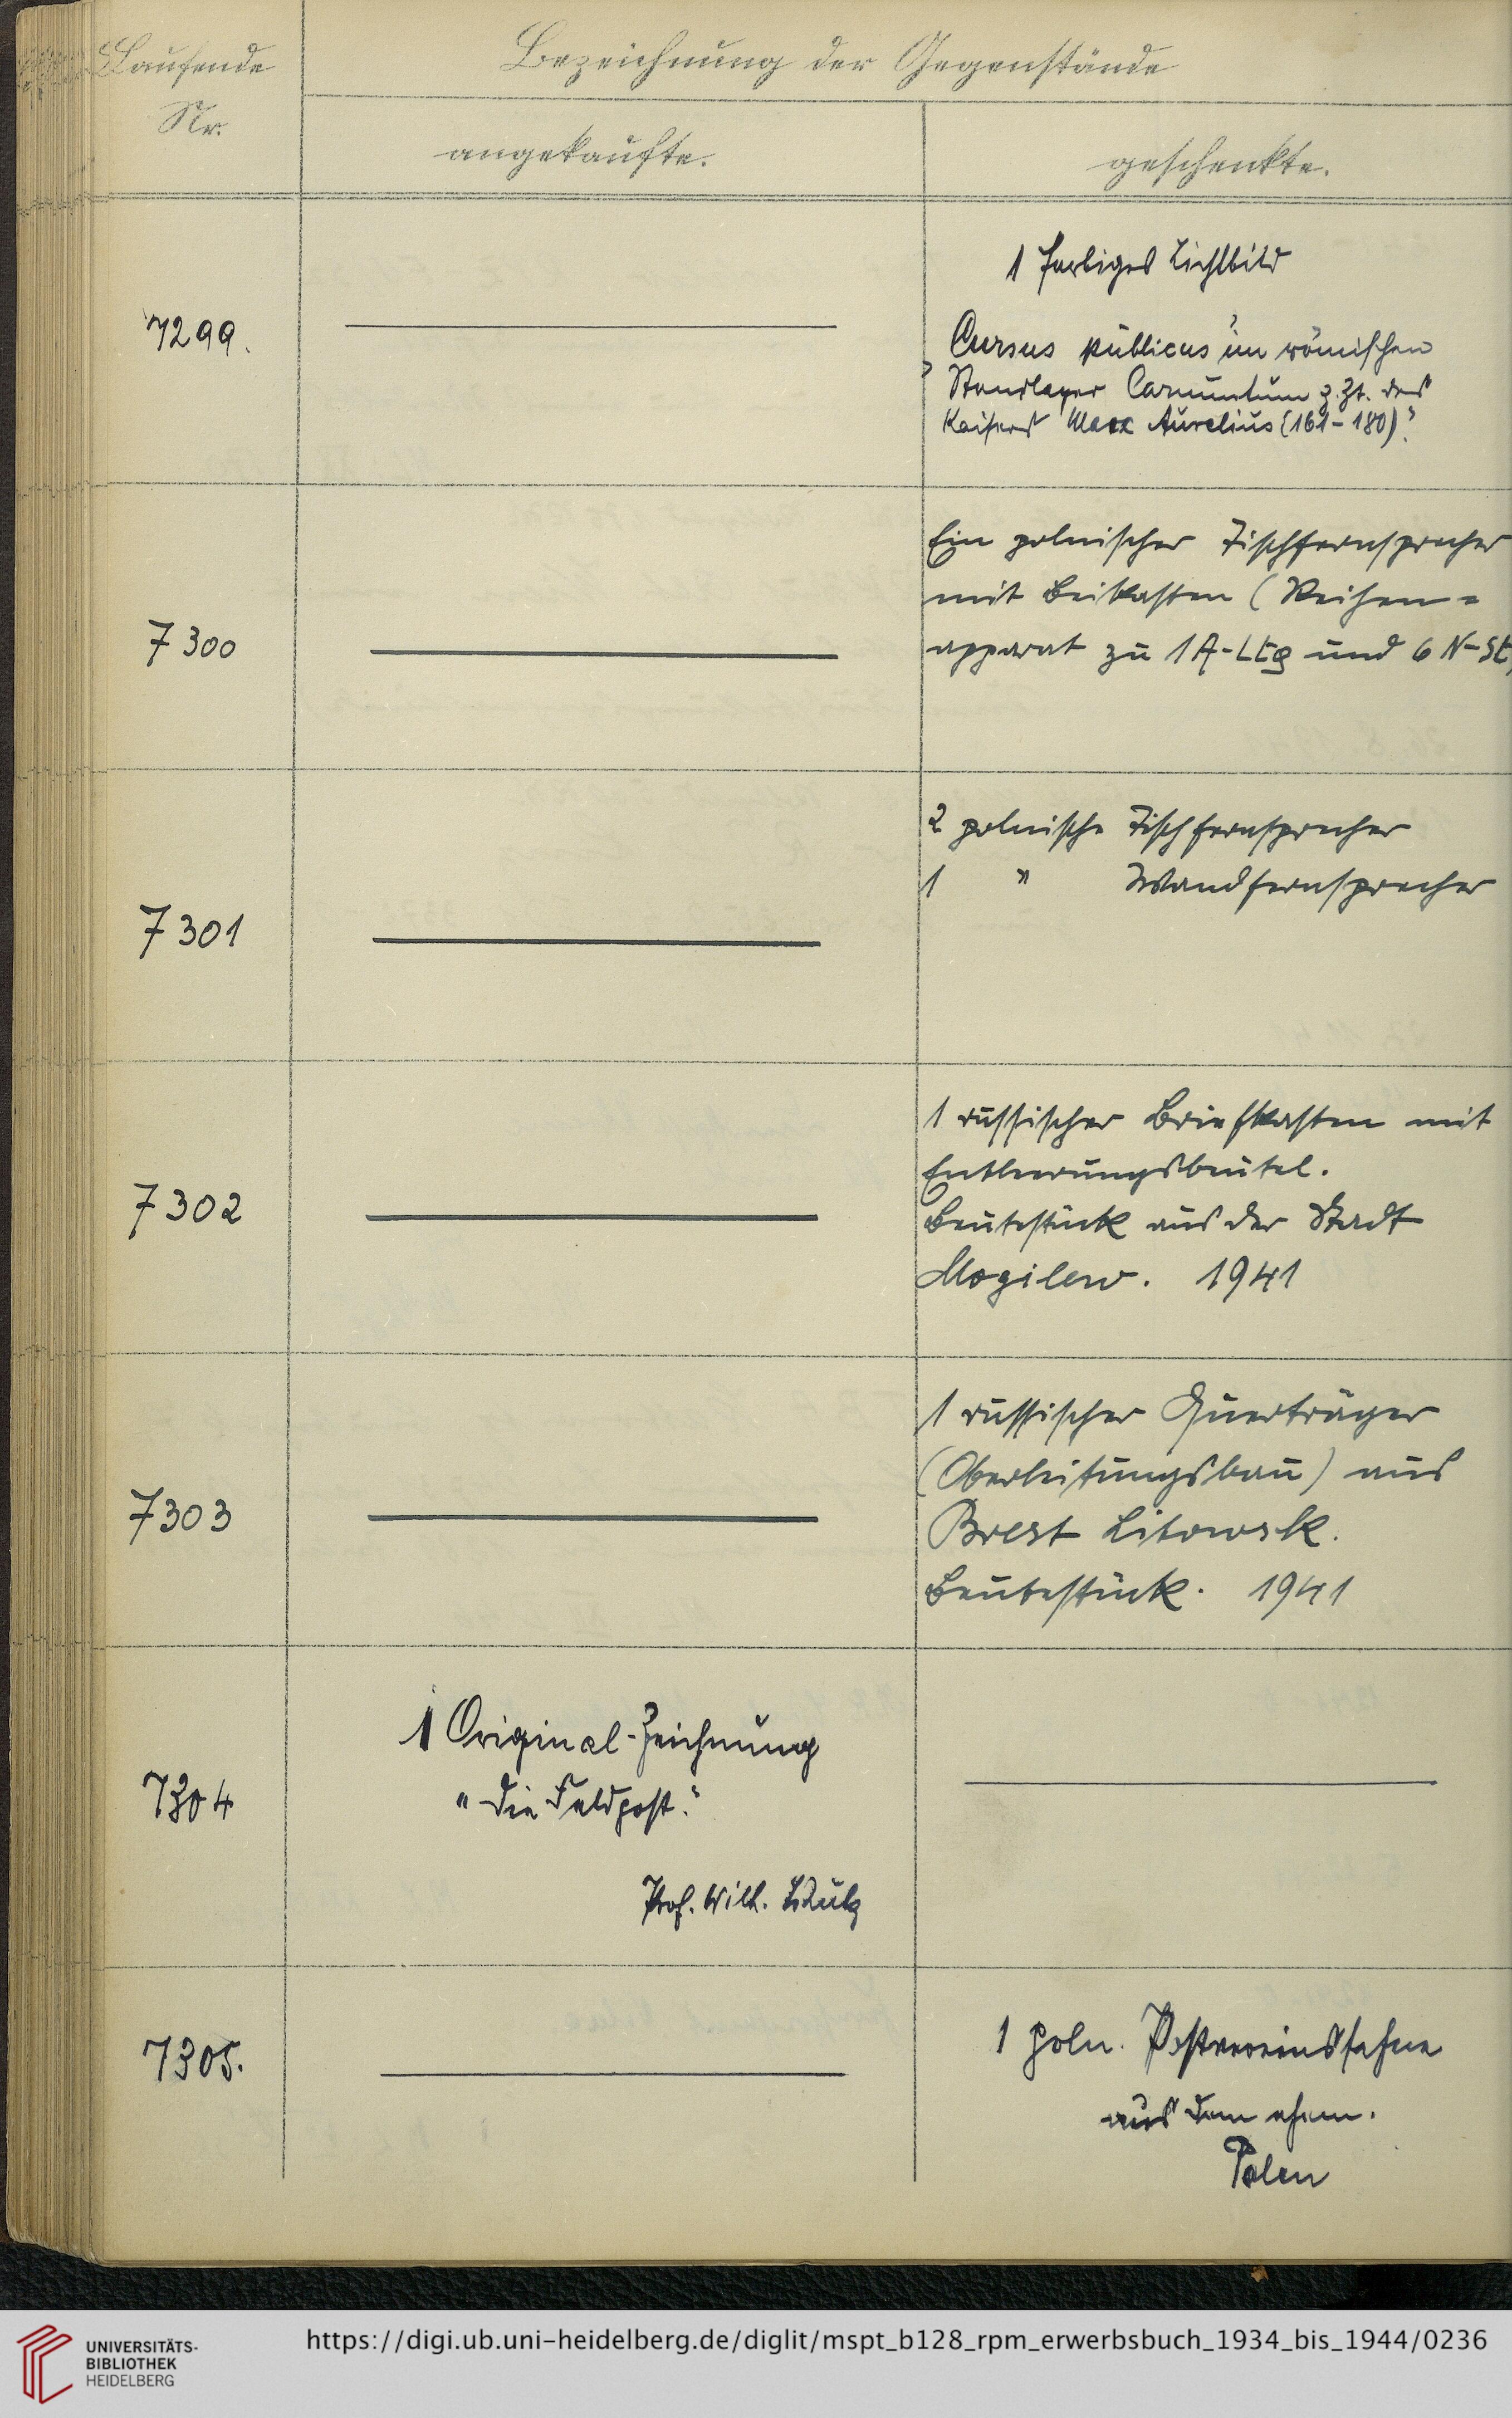 Laufende
Nr.
Bezeichnung der Gegenstände
angekaufte.
geschenkte.
7299.
1 farbiges Lichtbild
„Cursus publicus im römischen
Standlager Carnuntum z. Zt. des
Kaisers Marc Aurelius (161-180)."
7300
Ein polnischer Tischfernsprecher
mit Beikasten (Reihen=
apparat zu 1 A-Ltg und 6 N-St)
7301
2 polnische Tischfernsprecher
1 " Wandfernsprecher
7302
1 russischer Briefkasten mit
Entleerungsbeutel.
Beutestück aus der Stadt
Mogilew. 1941
7303
1 russischer Querträger
(Oberleitungsbau) aus
Brest Litowsk.
Beutestück. 1941
7304
1 Original-Zeichnung
"Die Feldpost."
Prof. Wilh.
7305.
1 poln. Postvereinsfahne
aus dem ehem.
Polen
UNIVERSITÄTS-
BIBLIOTHEK
HEIDELBERG
https://digi.ub.uni-heidelberg.de/diglit/mspt_b128_rpm_erwerbsbuch_1934_bis_1944/0236